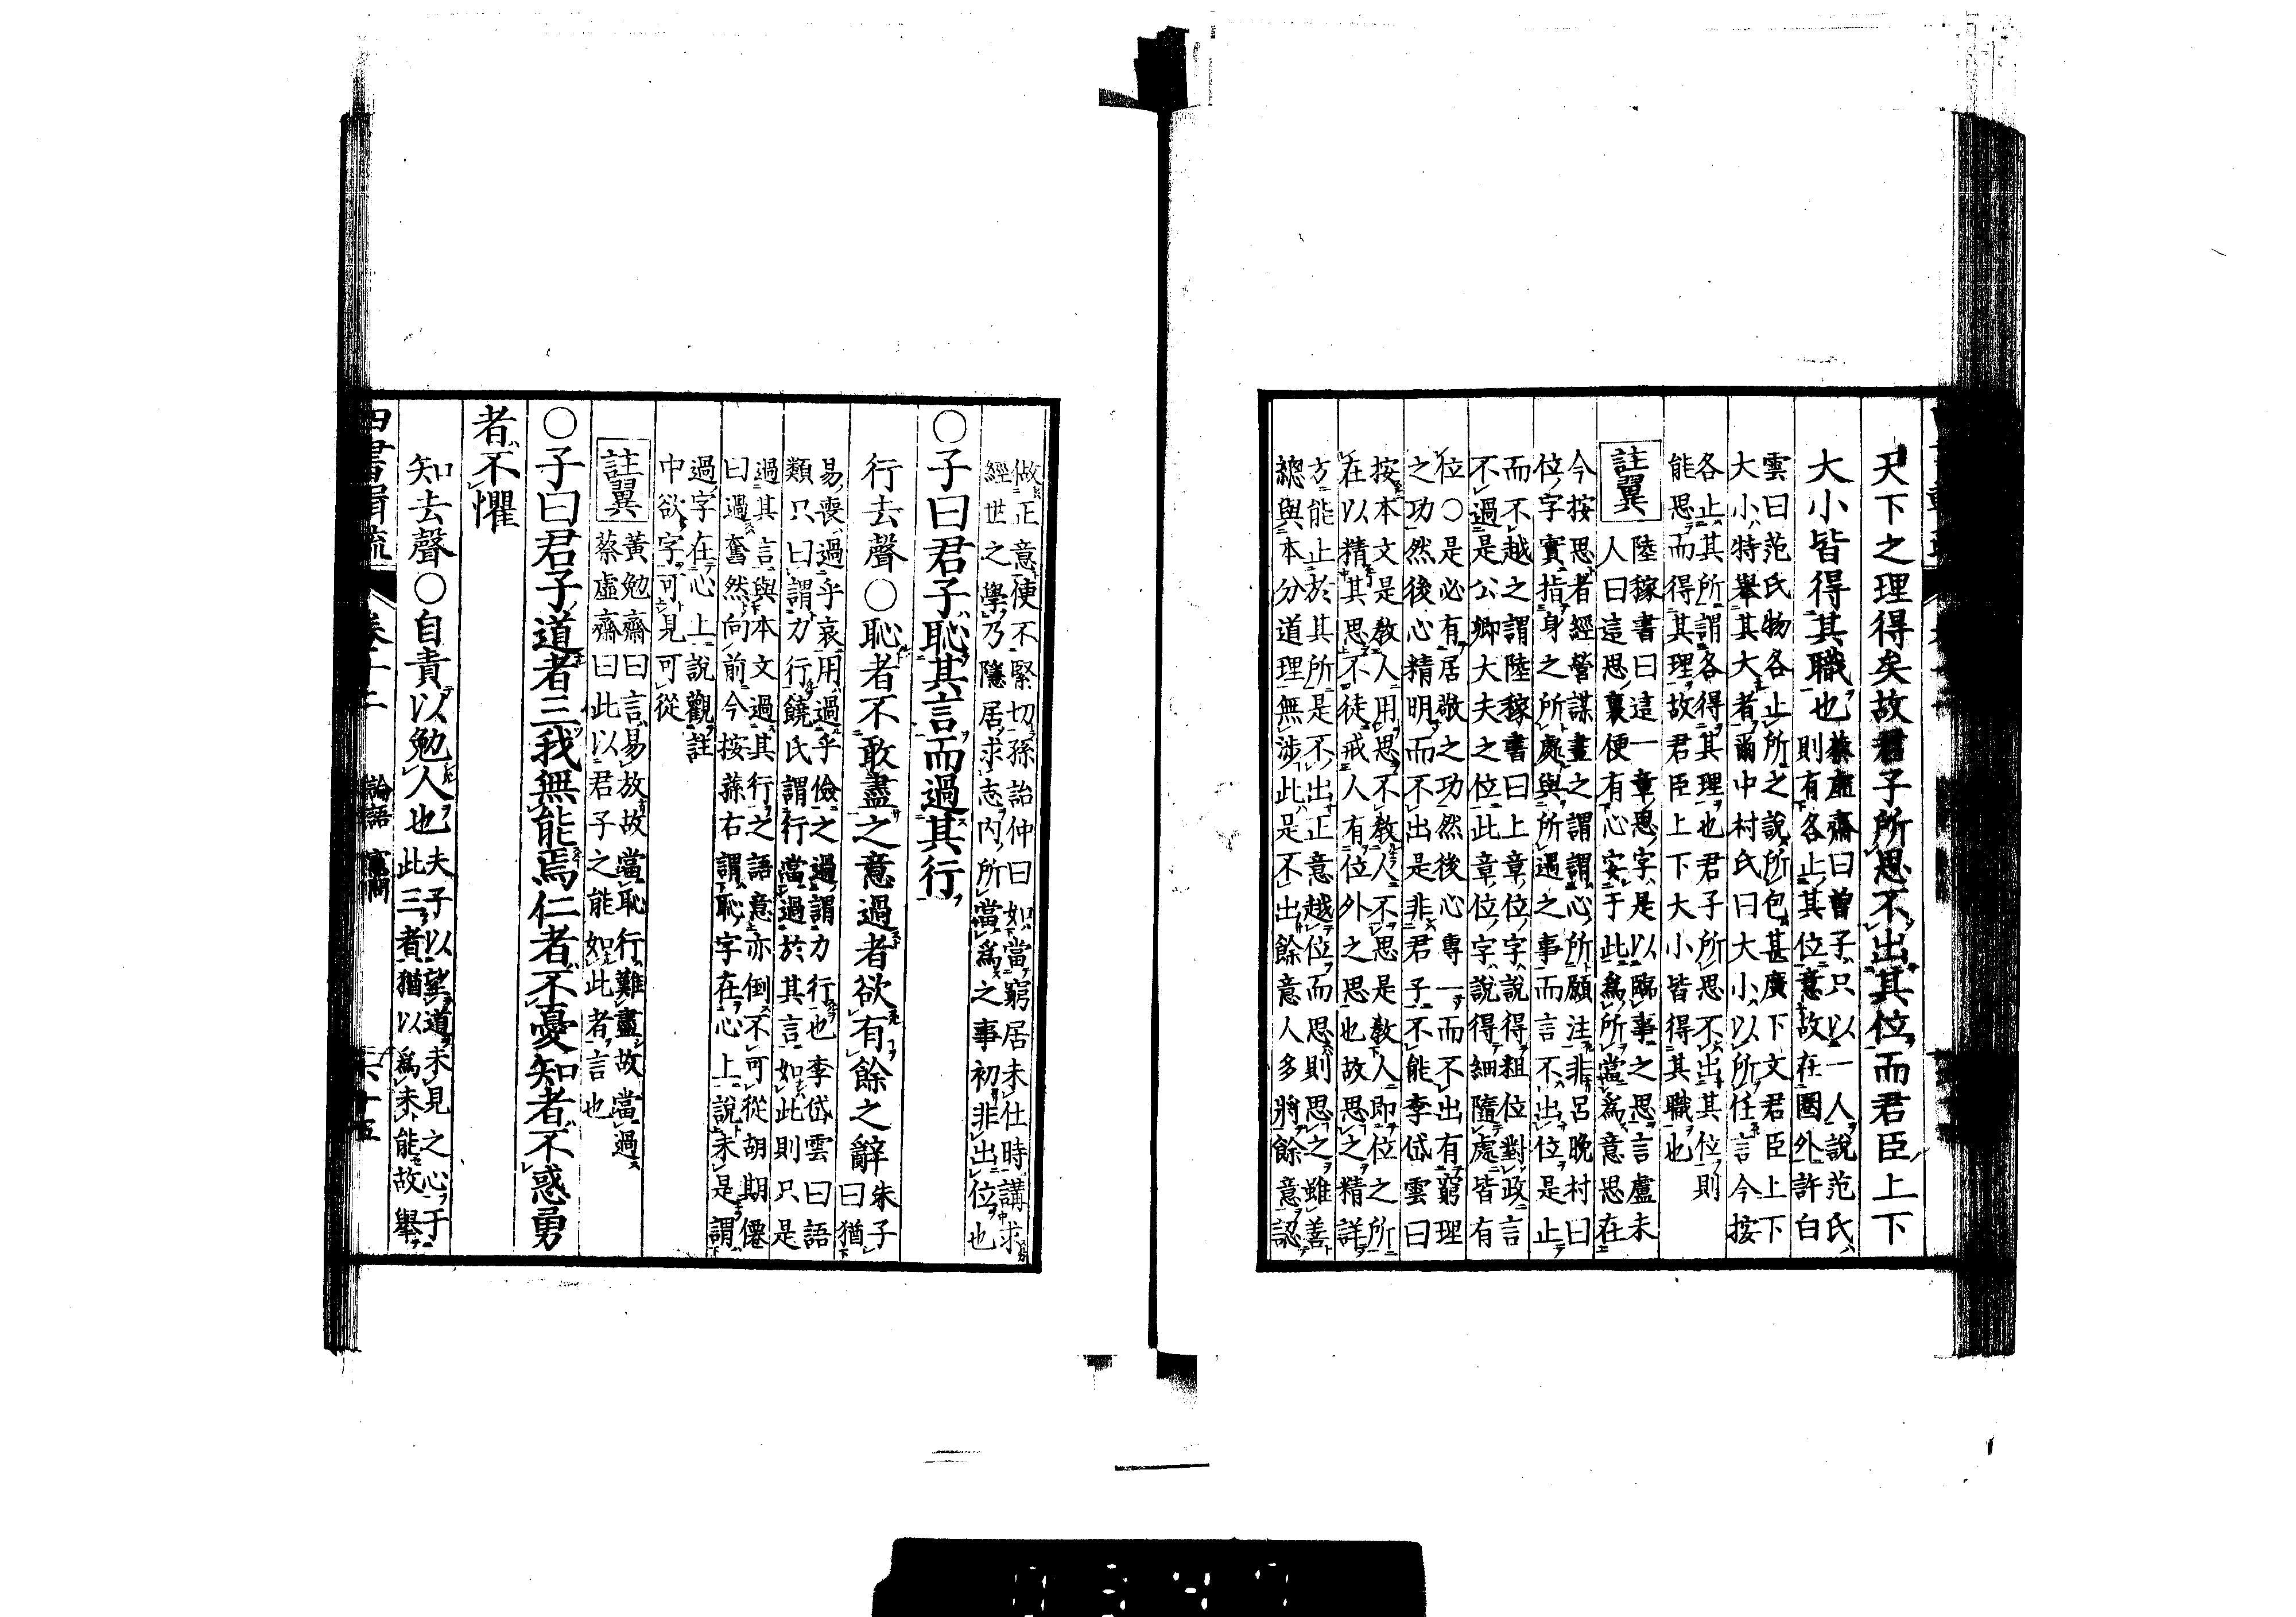 天下之理得矣故君子所思不出其位而君臣上下
大小皆得其職也
蔡虛齋曰曽子只以一人說范氏
則有各止其位意故在圏外許白
雲曰范氏物各止所之說所包甚廣下文君臣上下
大小特舉其大者爾中村氏曰大小以所任言今按
各止其所謂各得其理也君子所思不出其位則
能思而得其理故君臣上下大小皆得其職也
註翼
陸稼書曰這一章思字是以臨事之思言盧未
人曰這思裏便有心安于此為所當為意思在
今按思者經營謀畫之謂謂心所願注非呂晩村曰
位字實指身之所處與所遇之事而言不出位是止
而不越之謂陸稼書曰上章位字說得粗位對政言
不過是公卿大夫之位此章位字說得細隨處皆有
位○是必有居敬之功然後心專一而不出有窮理
之功然後心精明而不出是非君子不能李岱雲曰
按本文是敎人用思不敎人不思是敎人即位之所
在以精其思不徒戒人有位外之思也故思之精詳
方能止於其所是不出正意越位而思則思之雖善
總與本分道理無涉此是不出餘意人多將餘意認
做正意便不緊切孫詒仲曰如當窮居未仕時講求
經世之學乃隱居求志内所當為之事初非出位也
○子曰君子恥其言而過其行
行去聲○恥者不敢盡之意過者欲有餘之辭
朱子
曰猶
易喪過乎哀用過乎儉之過謂力行也李岱雲曰語
類只曰謂力行饒氏謂行當過於其言如此則只是
過其言與本文過其行之語意亦倒不可從胡期僊
曰過奮然向前今按蓀右謂恥字在心上說未是謂
過字在心上說觀註
中欲字可見可從
註翼
黃勉齋曰言易放故當恥行難盡故當過
蔡虛齋曰此以君子之能如此者言也
○子曰君子道者三我無能焉仁者不憂知者不惑勇
者不懼
知去聲○自責以勉人也
夫子以望道未見之心于
此三者猶以為未能故舉
四書
卷十二
論語
憲問
六十五